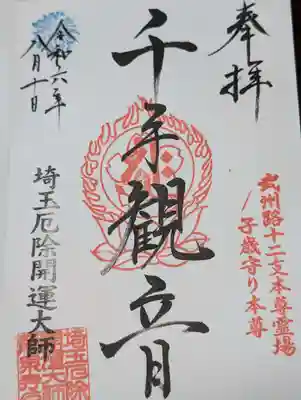 奉拝
武州路十二支本尊霊場
子歳守り本尊
千手観音
令和六年
八月十日
埼玉厄除開運大師